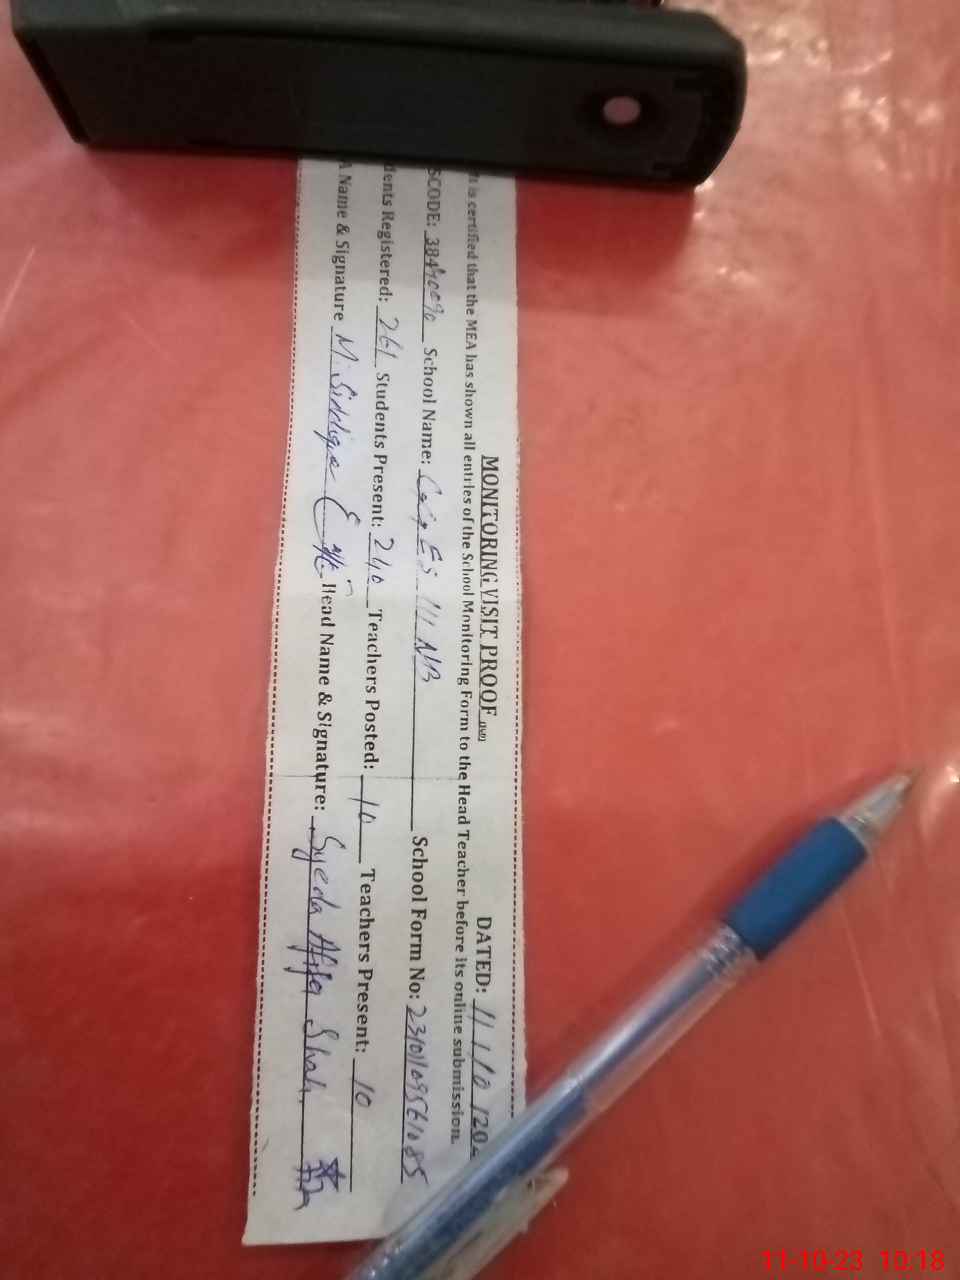 MONITORING VISIT PROOF DATED: 11/10/202
It is certified that the MEA has shown all entries of the School Monitoring Form to the Head Teacher before its online submission.
SCODE: School Name: School Form No:
dents Registered: 261 Students Present: 240 Teachers Posted: 10 Teachers Present: 10
A Name & Signature M. Siddique Head Name & Signature: Syeda Shah
11-10-23 10:18